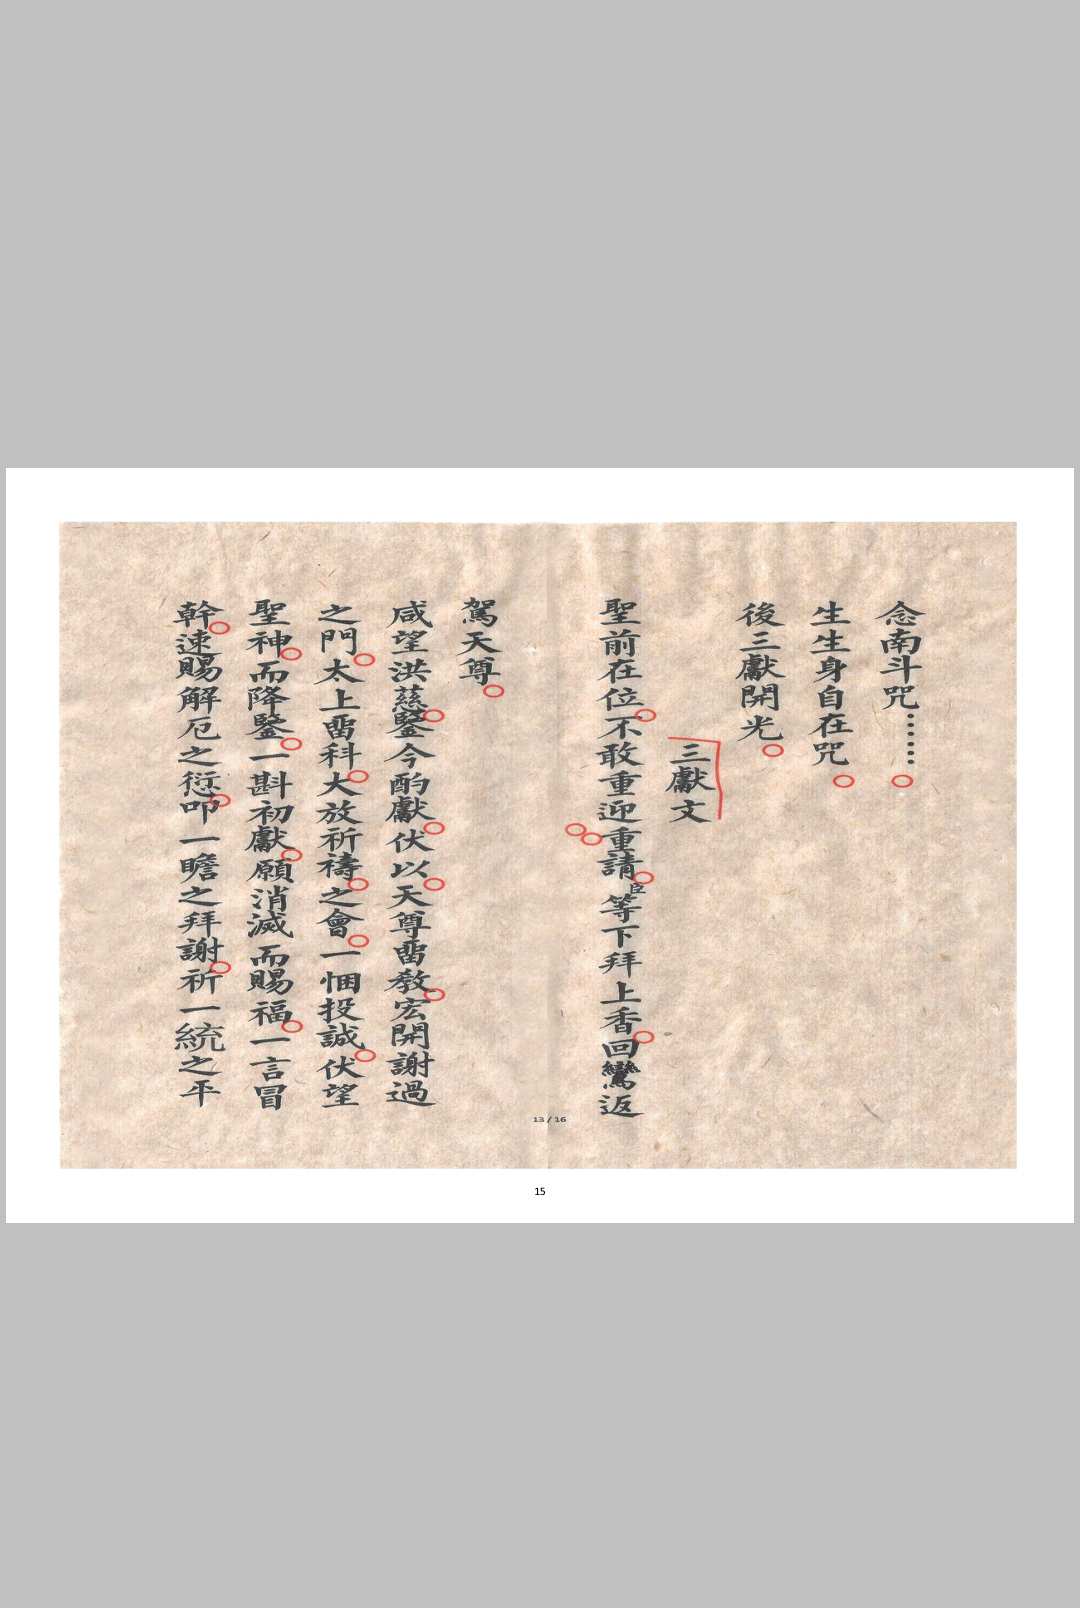 念南斗咒……
生生身自在咒
後三獻開光
三獻文
聖前在位不敢重迎重請臣等下拜上香回鸞返
駕天尊
咸望洪慈鑒今酌獻伏以天尊畱教宏開謝過
之門太上畱科大放祈禱之會一悃投誠伏望
聖神而降鑒一斟初獻願消滅而賜福一言冒
幹速賜解厄之愆叩一瞻之拜謝祈一統之平
13 / 16
15